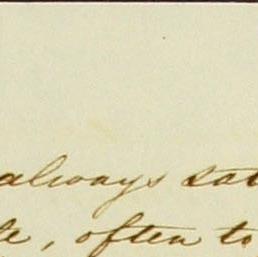 always sat
te, often to